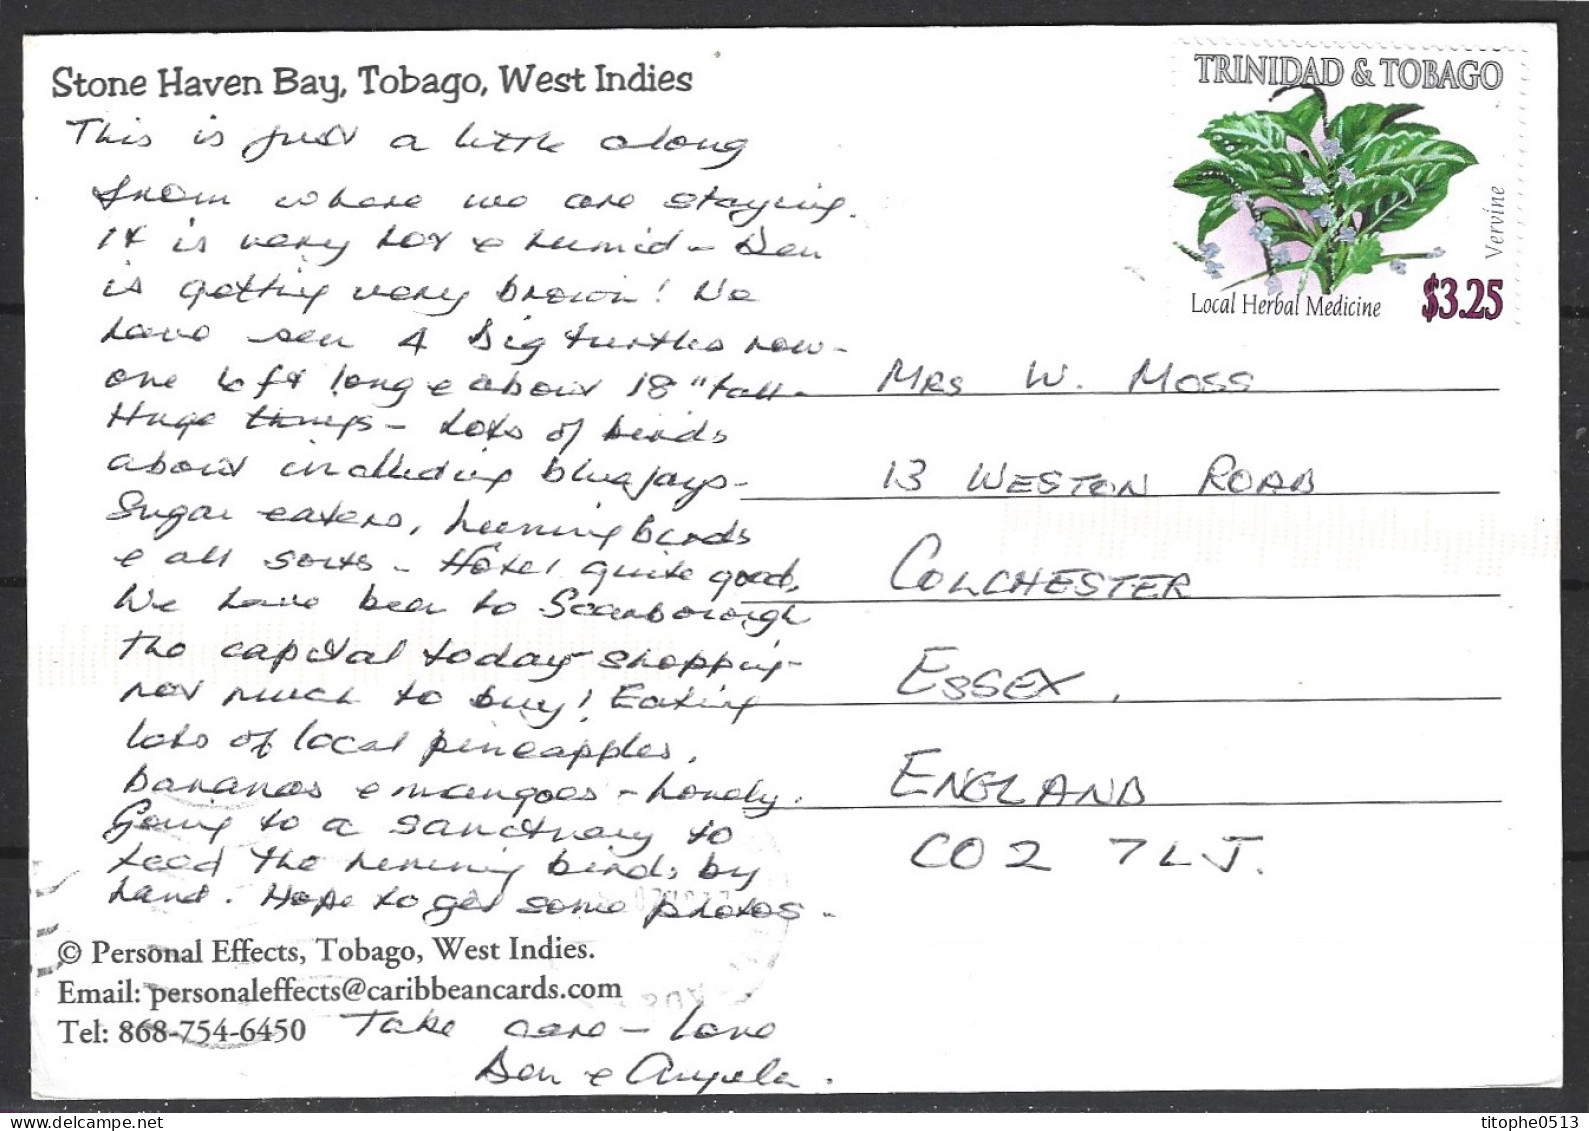 Stone Haven Bay, Tobago, West Indies
This is just a little along
from where we are staying.
It is very hot & humid - Den
is getting very brown! We
have seen 4 big turtles now -
one 6ft long & about 18" tall -
Huge things - Lots of birds
about including bluejays -
Sugar eaters, humming birds
& all sorts - Hotel quite good,
We have been to Scarborough
the capital today shopping -
not much to buy! Eating
lots of local pineapples,
bananas & mangoes - lovely.
Going to a sanctuary to
feed the humming birds by
hand. Hope to get some photos -
© Personal Effects, Tobago, West Indies.
Email: personaleffects@caribbeancards.com
Tel: 868-754-6450
Take care - Love
Den & Angela.
TRINIDAD & TOBAGO
Vervine
Local Herbal Medicine
$3.25
MRS W. MOSS
13 WESTON ROAD
COLCHESTER
ESSEX,
ENGLAND
CO2 7LJ.
titophe0513